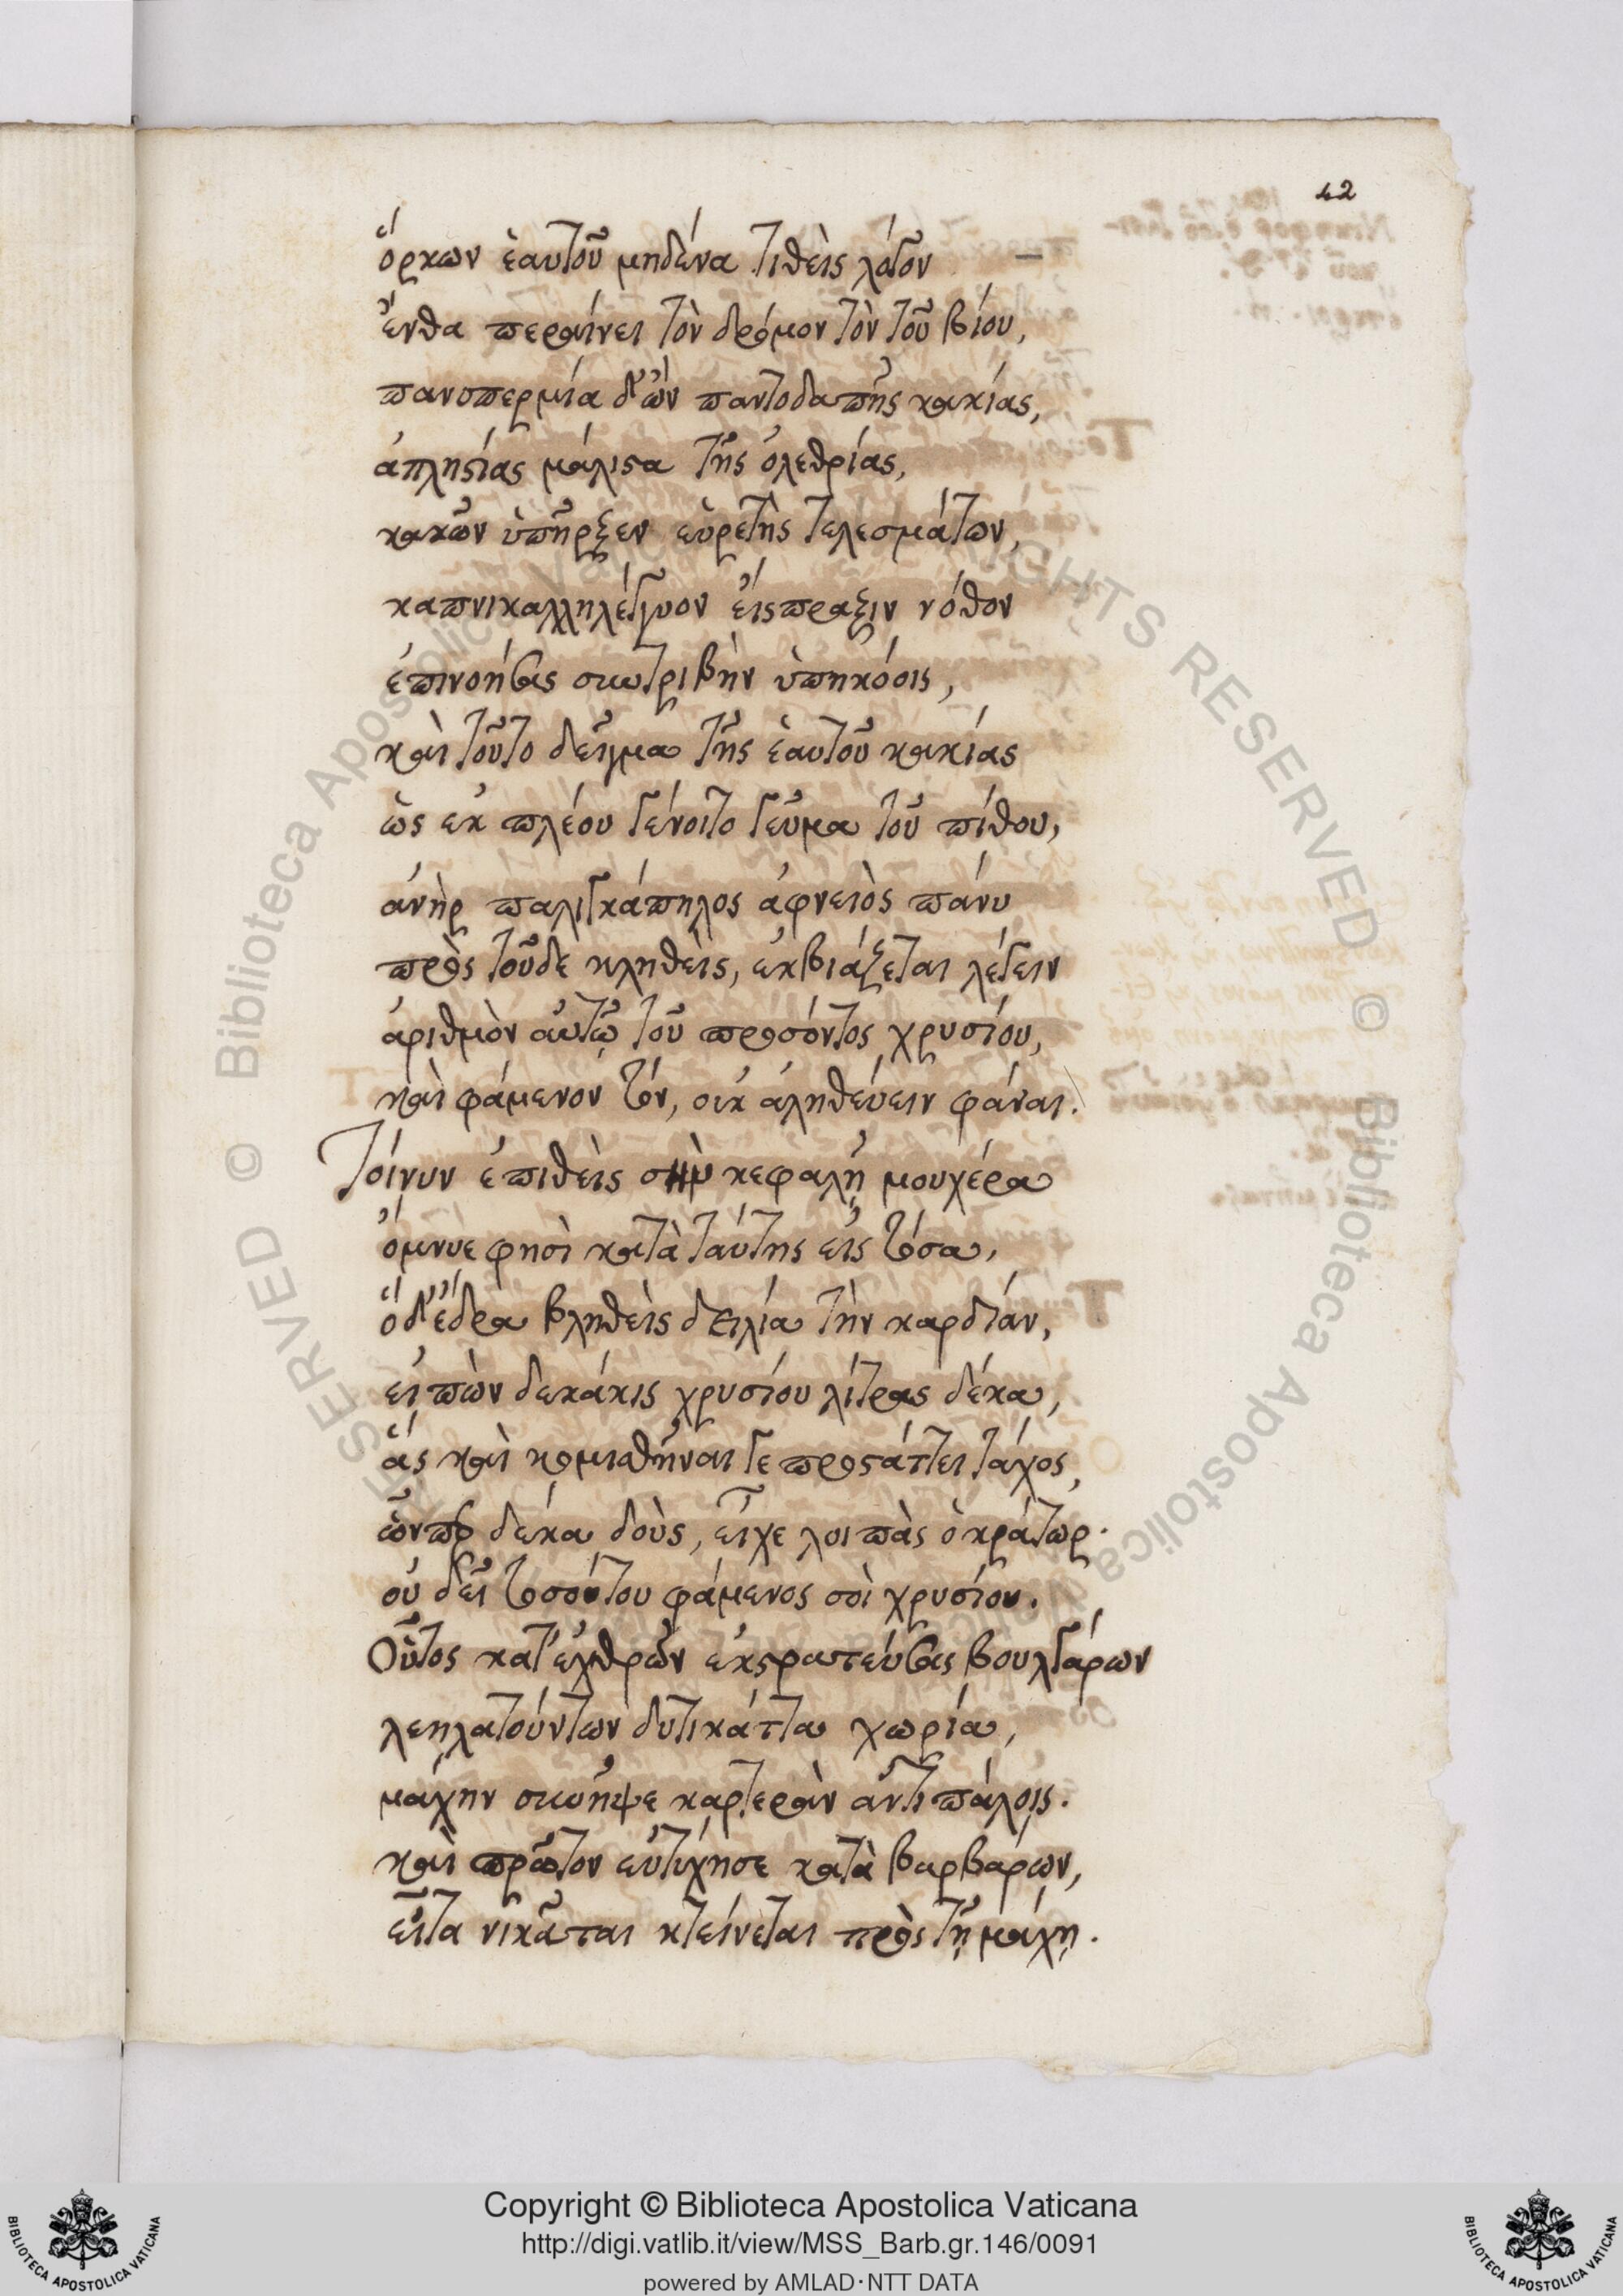 42
ὅρκων ἑαυτοῦ μηδένα τιθεὶς λόγον
ἔνθα περαίνει τὸν δρόμον τὸν τοῦ βίου,
πανσπερμία δ' ὢν παντοδαπῆς κακίας,
ἀπληστίας μάλιστα τῆς ὀλεθρίας,
κακῶν ὑπῆρξεν εὑρετὴς τελεσμάτων,
καπνικαλληλέγγυον εἴσπραξιν νόθον
ἐπινοήσας συντριβὴν ὑπηκόοις,
καὶ τοῦτο δεῖγμα τῆς ἑαυτοῦ κακίας
ὡς ἐκ πλέου γένοιτο γεῦμα τοῦ πίθου,
ἀνὴρ παλιγκάπηλος ἀφνειὸς πάνυ
πρὸς τοῦδε κληθεὶς, ἐκβιάζεται λέγειν
ἀριθμὸν αὐτῷ τοῦ προσόντος χρυσίου,
καὶ φάμενον τὸν, οὐκ ἀληθεύειν φάναι.
Τοίνυν ἐπιθεὶς σὴν κεφαλῇ μου χέρα
ὄμνυε φησὶ κατὰ ταύτης εἰς τόσα,
ὁ δ' ἕδρα βληθεὶς δειλία τὴν καρδίαν,
εἰπὼν δεκάκις χρυσίου λίτρας δέκα,
ἃς καὶ κομισθῆναι γε προστάττει τάχος,
ὧνπερ δέκα δοὺς, εἶχε λοιπὰς ὁ κράτωρ.
οὐ δεῖ τοσούτου φάμενος σοὶ χρυσίου.
Οὗτος κατ' ἐχθρῶν ἐκστρατεύσας βουλγάρων
λεηλατούντων δυτικάττα χωρία,
μάχην συνῆψε καρτερὰν ἀντιπάλοις.
καὶ πρῶτον εὐτύχησε κατὰ βαρβάρων,
εἶτα νικᾶται κτείνεται πρὸς τῇ μάχῃ.
Copyright © Biblioteca Apostolica Vaticana
http://digi.vatlib.it/view/MSS_Barb.gr.146/0091
powered by AMLAD·NTT DATA
BIBLIOTECA APOSTOLICA VATICANA
BIBLIOTECA APOSTOLICA VATICANA